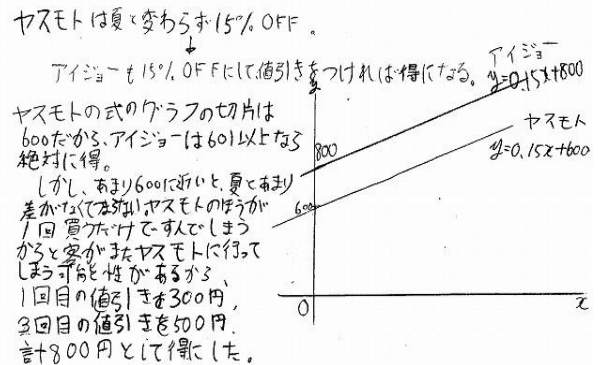 ヤスモトは夏と変わらず15%OFF。
↓
アイジョーも15%OFFにして、値引きをつければ得になる。
ヤスモトの式のグラフの切片は
600だから、アイジョーは601以上なら
絶対に得。
しかし、あまり600に近いと、夏とあまり
差がなくてつまらない。ヤスモトのほうが
1回買うだけですんでしまう
からと客がまたヤスモトに行って
しまう可能性があるから、
1回目の値引きを300円、
3回目の値引きを500円、
計800円として得にした。
y
アイジョー
y=0.15x+800
ヤスモト
y=0.15x+600
800
600
0
x